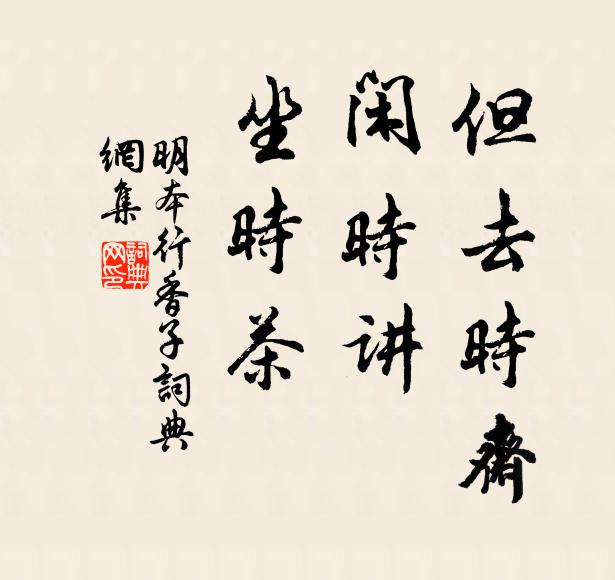 但去時齋
闲時讲
坐時茶
明本行香子詞典
網集
詞典
网印